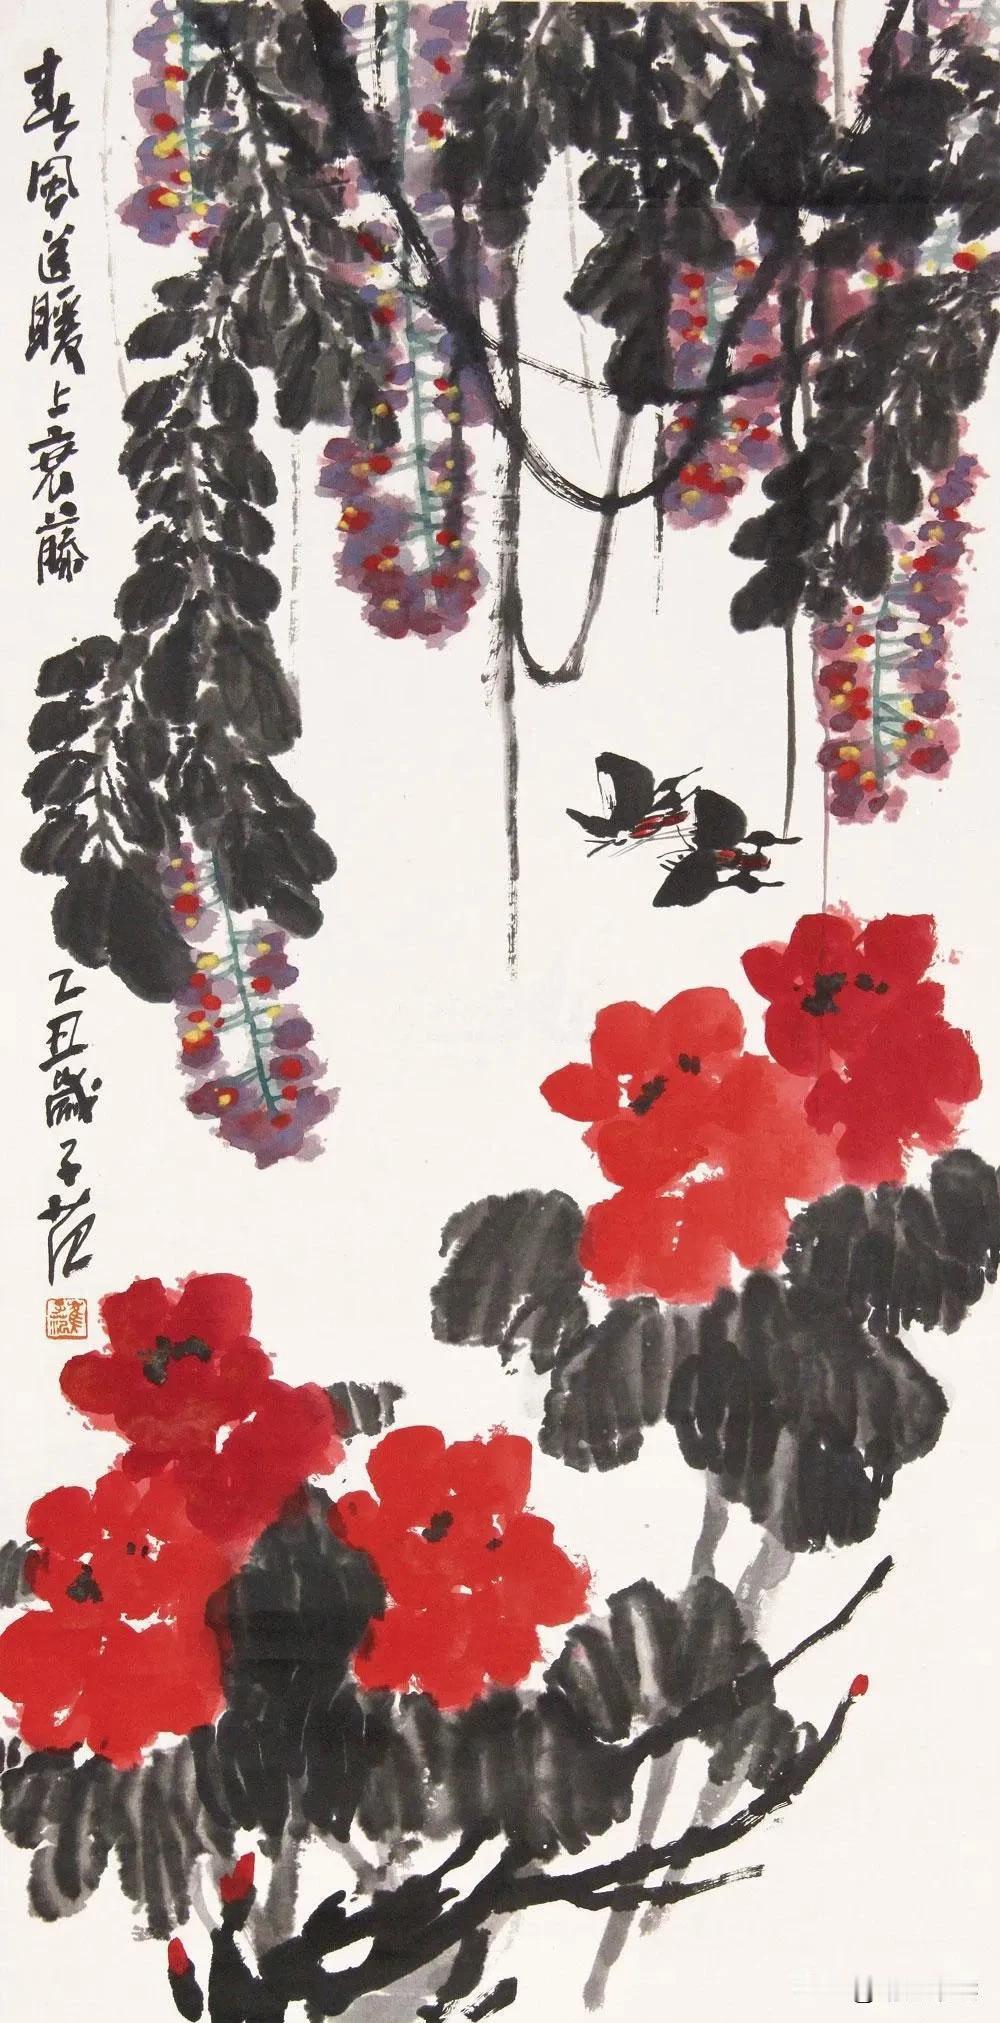 春風送暖上衰藤
乙丑歲子范